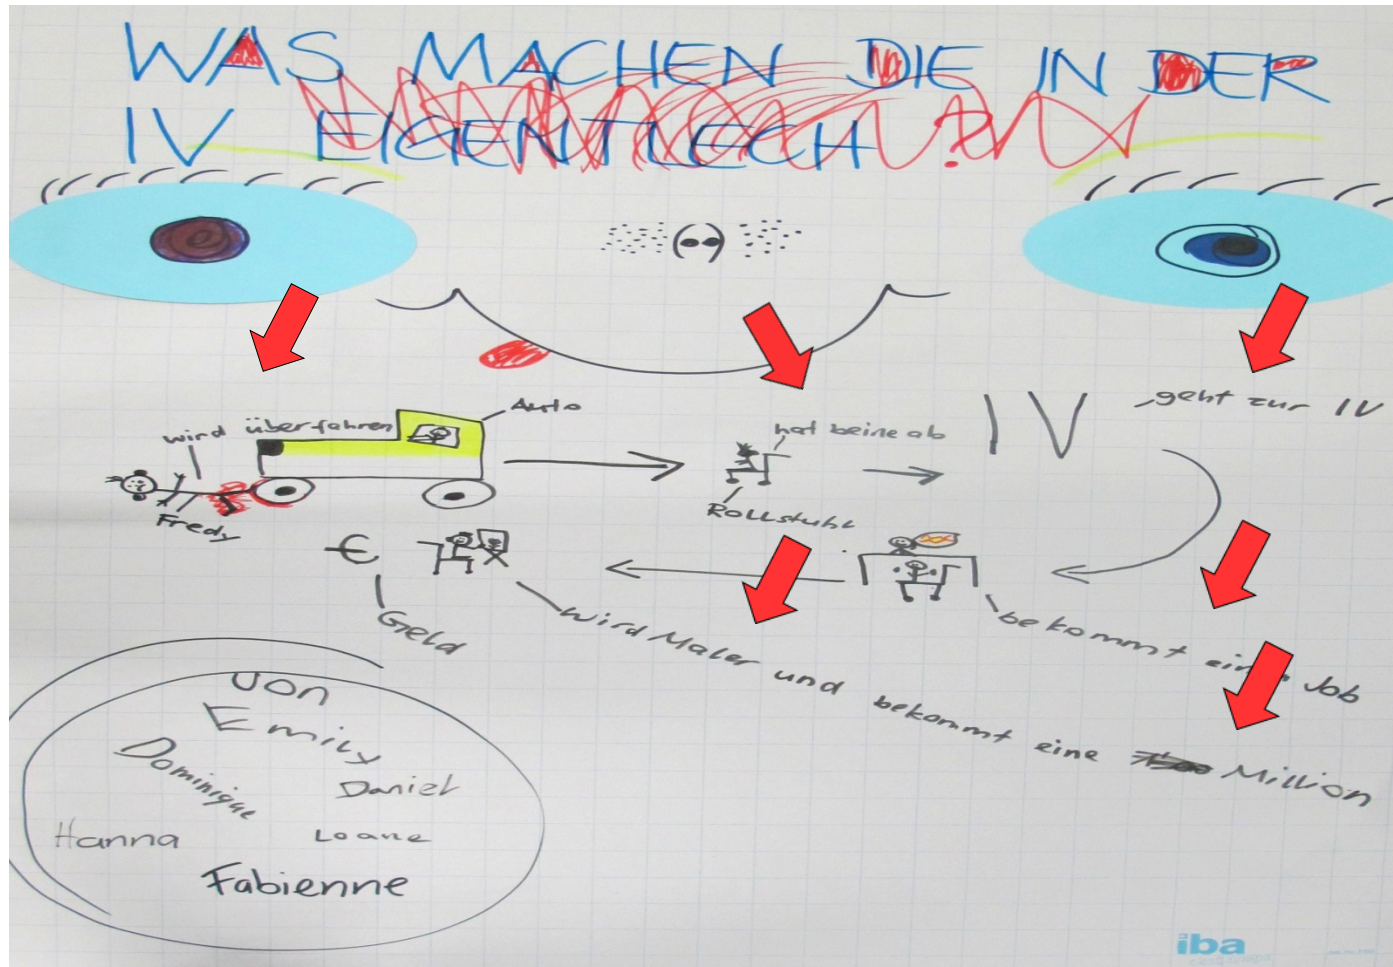 WAS MACHEN DIE IN DER
IV EIGENTLECH ?
Auto
wird überfahren
Fredy
hat beine ab
Rollstuhl
IV
geht zur IV
bekommt ein Job
wird Maler und bekommt eine Million
€
Geld
von
Emily
Dominique
Daniel
Hanna
Loane
Fabienne
iba